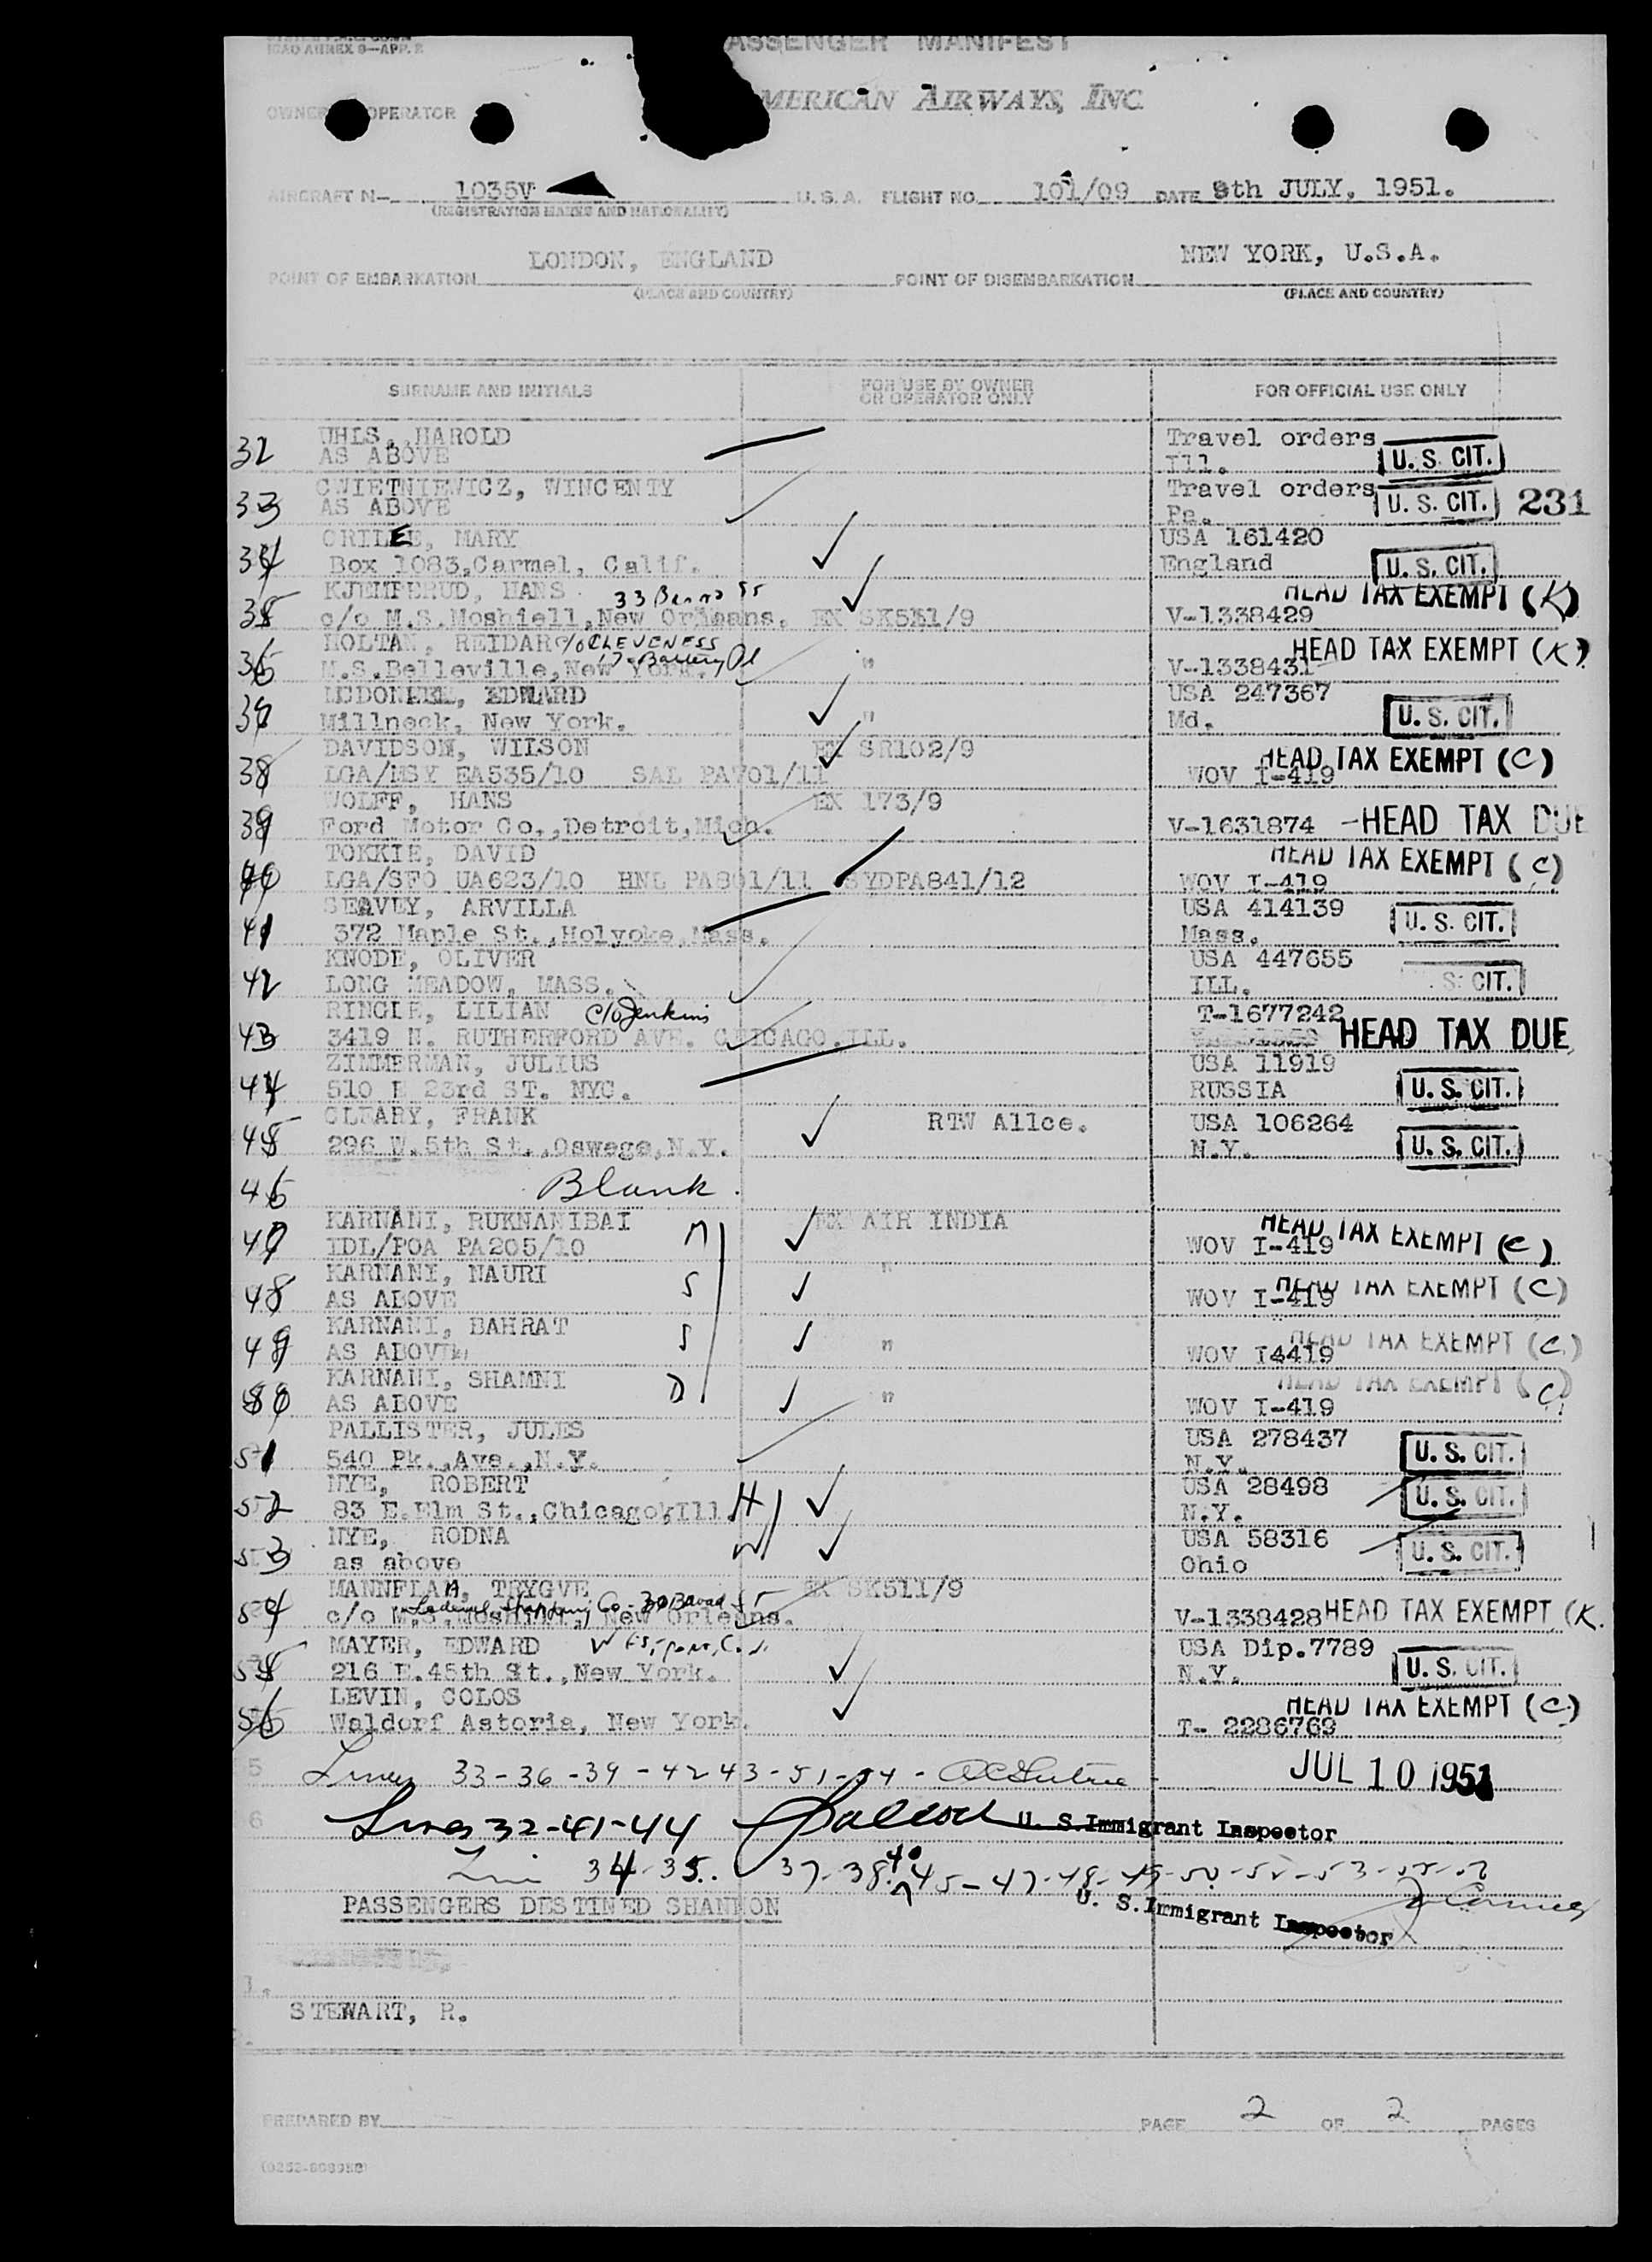 ICAO ANNEX 9—APP. 2
ASSENGER MANIFEST
MERICAN AIRWAYS, INC.
OWNER OPERATOR
AIRCRAFT N— 1035V U.S.A. FLIGHT NO. 101/09 DATE 9th JULY, 1951.
(REGISTRATION MARKS AND NATIONALITY)
LONDON, ENGLAND NEW YORK, U.S.A.
POINT OF EMBARKATION POINT OF DISEMBARKATION
(PLACE AND COUNTRY) (PLACE AND COUNTRY)
SURNAME AND INITIALS FOR USE BY OWNER OR OPERATOR ONLY FOR OFFICIAL USE ONLY
UHLS, HAROLD Travel orders
32 AS ABOVE Ill. U. S. CIT.
CWIETNIEWICZ, WINCENTY Travel orders
33 AS ABOVE Pa. U. S. CIT. 231
MARY USA 161420
34 Box 1083,Carmel, Calif. England U. S. CIT.
KJEMPERUD, HANS HEAD TAX EXEMPT (K)
35 c/o M.S.Moshiell,New Orleans. EX SK551/9 V-1338429
HOLTAN, REIDAR c/o CLEVENESS HEAD TAX EXEMPT (K)
36 M.S.Belleville,New York. 17-Battery Pl " V-1338431
EDWARD USA 247367
37 Millneck, New York. " Md. U. S. CIT.
DAVIDSON, WILSON EX SR102/9 HEAD TAX EXEMPT (C)
38 LGA/MSY EA535/10 SAL PA701/11 WOV I-419
WOLFF, HANS EX 173/9
39 Ford Motor Co.,Detroit,Mich. V-1631874 -HEAD TAX DUE
TOKKIE, DAVID HEAD TAX EXEMPT (C)
40 LGA/SFO UA623/10 HNL PA801/11 SYDPA841/12 WOV I-419
SEAVEY, ARVILLA USA 414139
41 372 Maple St.,Holyoke,Mass. Mass. U. S. CIT.
KNODE, OLIVER USA 447655
42 LONG MEADOW, MASS. ILL. S. CIT.
RINGLE, LILIAN c/o Jenkins T-1677242
43 3419 N. RUTHERFORD AVE. CHICAGO.ILL. HEAD TAX DUE
ZIMMERMAN, JULIUS USA 11919
44 510 E 23rd ST. NYC. RUSSIA U. S. CIT.
CLEARY, FRANK RTW Allce. USA 106264
45 296 W.5th St.,Oswego,N.Y. N.Y. U. S. CIT.
46 Blank.
KARNANI, RUKNANIBAI M EX AIR INDIA HEAD TAX EXEMPT (C)
47 IDL/POA PA205/10 WOV I-419
KARNANI, NAURI S " HEAD TAX EXEMPT (C)
48 AS ABOVE WOV I-419
KARNANI, BAHRAT S " HEAD TAX EXEMPT (C)
49 AS ABOVE WOV I4419
KARNANI, SHAMNI D " HEAD TAX EXEMPT (C)
50 AS ABOVE WOV I-419
PALLISTER, JULES USA 278437
51 540 Pk.,Ave.,N.Y. N.Y. U. S. CIT.
NYE, ROBERT USA 28498
52 83 E.Elm St.,Chicago,Ill. H N.Y. U. S. CIT.
NYE, RODNA USA 58316
53 as above W Ohio U. S. CIT.
TRYGVE EX SK511/9
54 c/o New Orleans. V-1338428 HEAD TAX EXEMPT (K.
MAYER, EDWARD USA Dip.7789
55 216 E.45th St.,New York. N.Y. U. S. CIT.
LEVIN, COLOS HEAD TAX EXEMPT (C)
56 Waldorf Astoria, New York. T- 2286769
5 Lines 33-36-39-42 43-51-54- JUL 10 1951
6 Lines 32-41-44 U. S. Immigrant Inspector
34-35. 37-38. 40 45-47-48-49-50-52-53
PASSENGERS DESTINED SHANNON U. S. Immigrant Inspector
1.
STEWART, R.
PREPARED BY PAGE 2 OF 2 PAGES